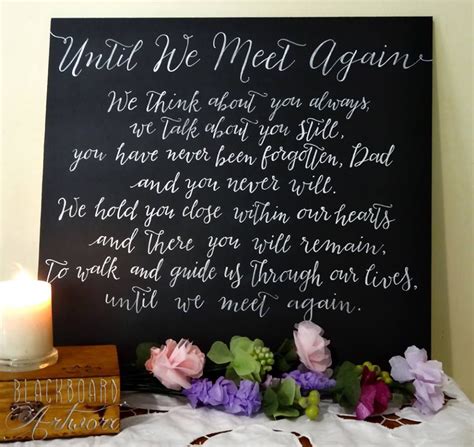 Until We Meet Again
We think about you always,
we talk about you still,
you have never been forgotten, Dad
and you never will.
We hold you close within our hearts
and there you will remain,
To walk and guide us through our lives,
until we meet again.
BLACKBOARD
Artwork